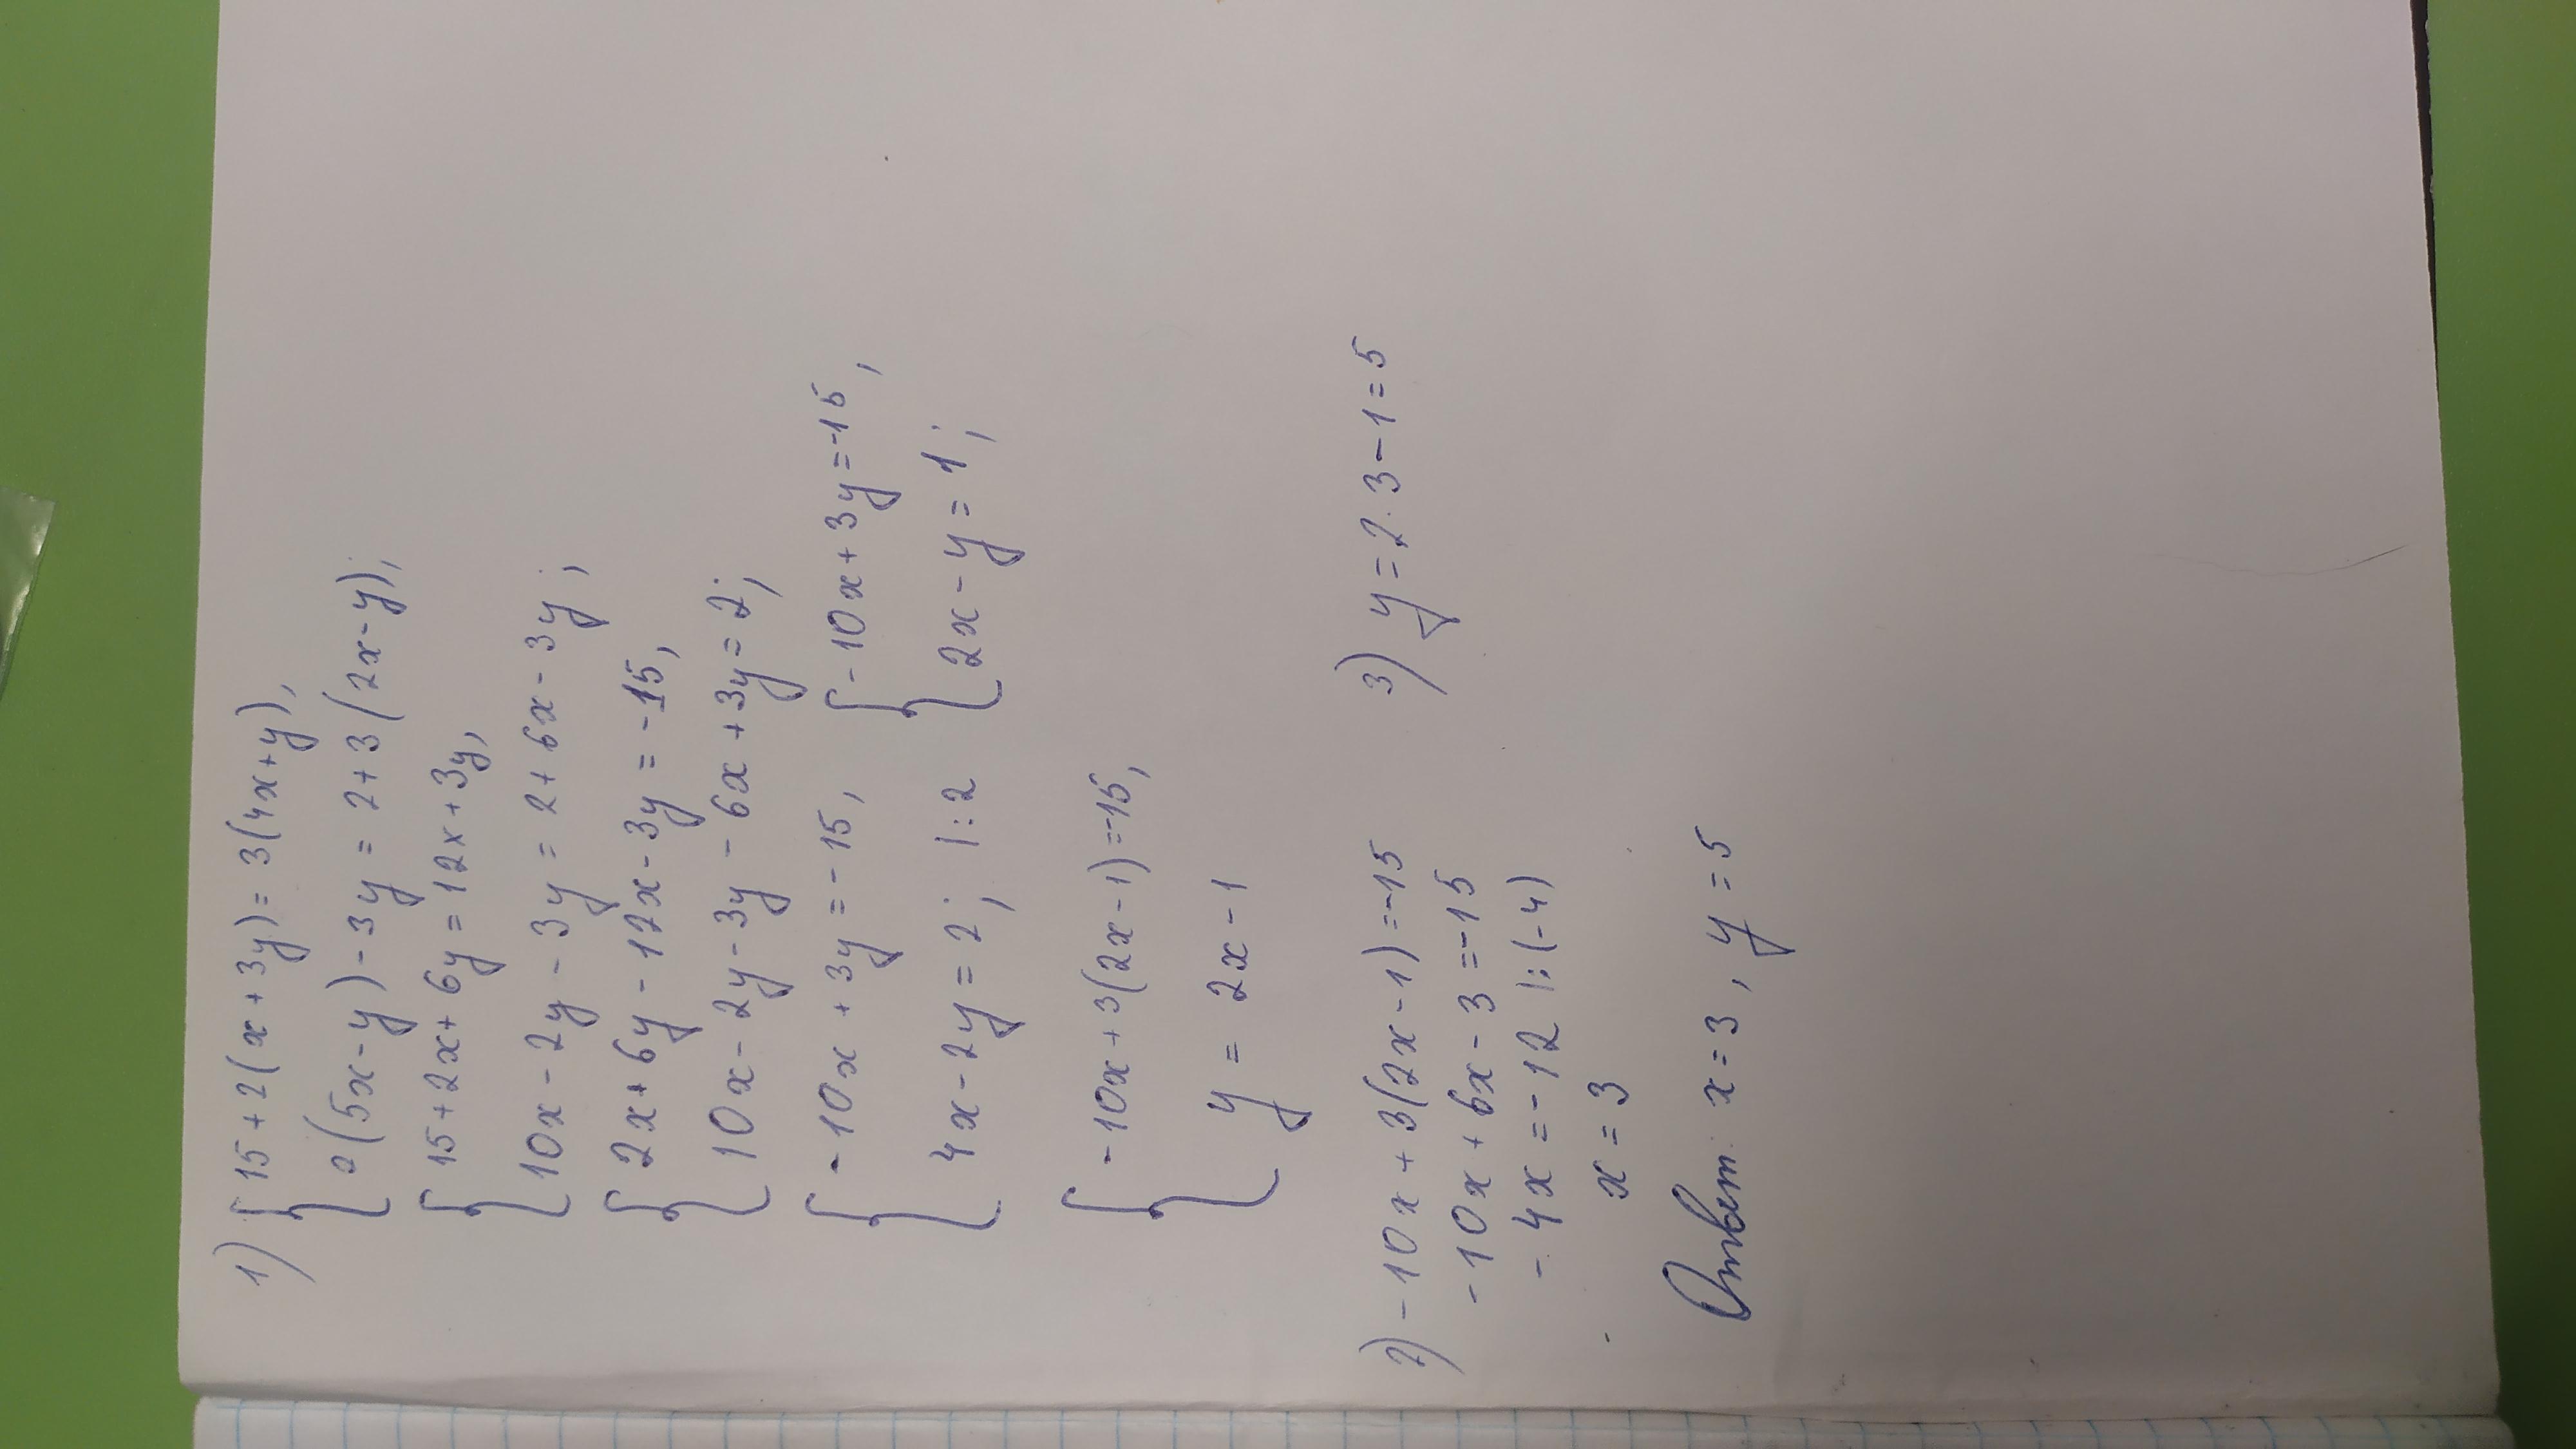 1) { 15 + 2(x + 3y) = 3(4x + y),
2(5x - y) - 3y = 2 + 3(2x - y);
{ 15 + 2x + 6y = 12x + 3y,
10x - 2y - 3y = 2 + 6x - 3y;
{ 2x + 6y - 12x - 3y = -15,
10x - 2y - 3y - 6x + 3y = 2;
{ -10x + 3y = -15, { -10x + 3y = -15,
4x - 2y = 2; |:2 2x - y = 1;
{ -10x + 3(2x - 1) = -15,
y = 2x - 1
2) -10x + 3(2x - 1) = -15 3) y = 2 · 3 - 1 = 5
-10x + 6x - 3 = -15
-4x = -12 |:(-4)
x = 3
Ответ: x = 3, y = 5